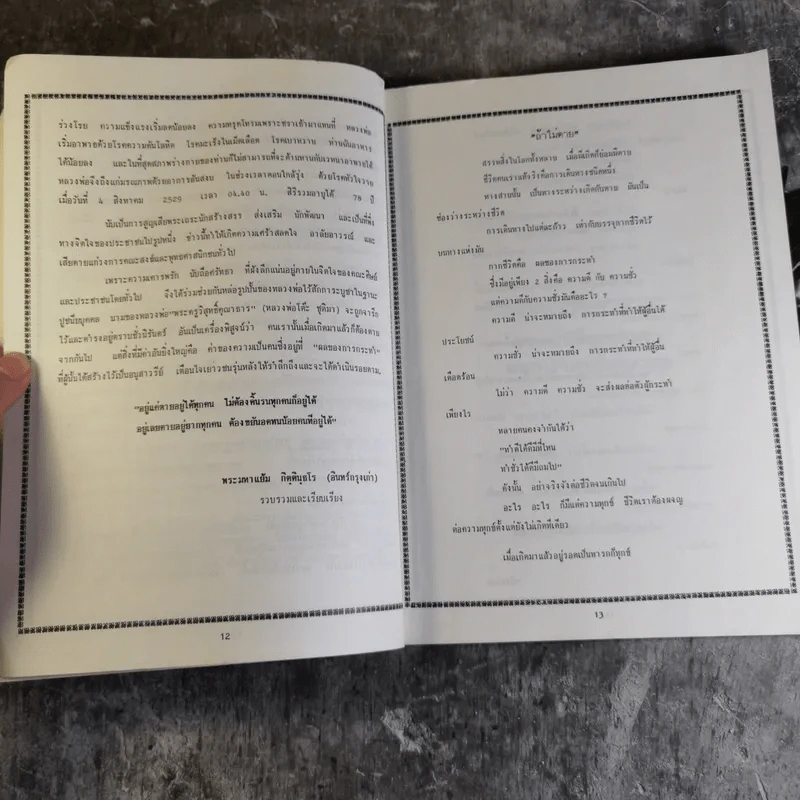 ร่วงโรย ความแข็งแรงเริ่มลดน้อยลง ความทรุดโทรมเพราะชราเข้ามาแทนที่ หลวงพ่อ
เริ่มอาพาธด้วยโรคความดันโลหิต โรคมะเร็งในเม็ดเลือด โรคเบาหวาน ท่านฉันอาหาร
ได้น้อยลง และในที่สุดสภาพร่างกายของท่านก็ไม่สามารถที่จะต้านทานกับเวทนาอาพาธได้
หลวงพ่อจึงถึงแก่มรณภาพด้วยอาการอันสงบ ในช่วงเวลาตอนใกล้รุ่ง ด้วยโรคหัวใจวาย
เมื่อวันที่ 4 สิงหาคม 2529 เวลา 04.40 น. สิริรวมอายุได้ 78 ปี
นับเป็นการสูญเสียพระเถระนักสร้างสรร ส่งเสริม นักพัฒนา และเป็นที่พึ่ง
ทางจิตใจของประชาชนไปรูปหนึ่ง ข่าวนี้ทำให้เกิดความเศร้าสลดใจ อาลัยอาวรณ์ และ
เสียดายแก่วงการคณะสงฆ์และพุทธศาสนิกชนทั่วไป
เพราะความเคารพรัก นับถือศรัทธา ที่ฝังลึกแน่นอยู่ภายในจิตใจของคณะศิษย์
และประชาชนโดยทั่วไป จึงได้ร่วมช่วยกันหล่อรูปปั้นของหลวงพ่อไว้สักการะบูชาในฐานะ
ปูชนียบุคคล นามของหลวงพ่อ "พระครูวิสุทธิ์คุณาธาร" (หลวงพ่อโต๊ะ ชุติมา) จะถูกจารึก
ไว้และดำรงอยู่ตราบชั่วปิรันดร์ อันเป็นเครื่องพิสูจน์ว่า คนเรานั้นเมื่อเกิดมาแล้วก็ต้องตาย
จากกันไป แต่สิ่งที่มีค่าอันยิ่งใหญ่คือ ค่าของความเป็นคนซึ่งอยู่ที่ "ผลของการกระทำ"
ที่ผู้นั้นได้สร้างไว้เป็นอนุสาวรีย์ เตือนใจเยาวชนรุ่นหลังให้รำลึกถึงและจะได้ดำเนินรอยตาม.
"อยู่แค่ตายอยู่ได้ทุกคน ไม่ต้องดิ้นรนทุกคนก็อยู่ได้
อยู่เลยตายอยู่ยากทุกคน ต้องขยันอดทนน้อยคนก็อยู่ได้"
พระมหาแย้ม กิตฺตินฺธโร (อินทร์กรุงเก่า)
รวบรวมและเรียบเรียง
12
"ถ้าไม่ตาย"
สรรพสิ่งในโลกทั้งหลาย เมื่อมีเกิดก็ย่อมมีตาย
ชีวิตคนเราแท้จริงคือการเดินทางชนิดหนึ่ง
ทางสายนั้น เป็นทางระหว่างเกิดกับตาย อันเป็น
ช่องว่างระหว่างชีวิต
การเดินทางไปแต่ละก้าว เท่ากับบรรจุกากชีวิตไว้
บนทางแห่งมัน
กากชีวิตคือ ผลของการกระทำ
ซึ่งมีอยู่เพียง 2 สิ่งคือ ความดี กับ ความชั่ว
แต่ความดีกับความชั่วมันคืออะไร ?
ความดี น่าจะหมายถึง การกระทำที่ทำให้ผู้อื่นได้
ประโยชน์
ความชั่ว น่าจะหมายถึง การกระทำที่ทำให้ผู้อื่น
เดือดร้อน
ไม่ว่า ความดี ความชั่ว จะส่งผลต่อตัวผู้กระทำ
เพียงไร
หลายคนคงจำกันได้ว่า
"ทำดีได้ดีมีที่ไหน
ทำชั่วได้ดีมีถมไป"
ดังนั้น อย่าจริงจังต่อชีวิตจนเกินไป
อะไร อะไร ก็มีแต่ความทุกข์ ชีวิตเราต้องผจญ
ต่อความทุกข์ตั้งแต่ยังไม่เกิดทีเดียว
เมื่อเกิดมาแล้วอยู่รอดเป็นทารกก็ทุกข์
13